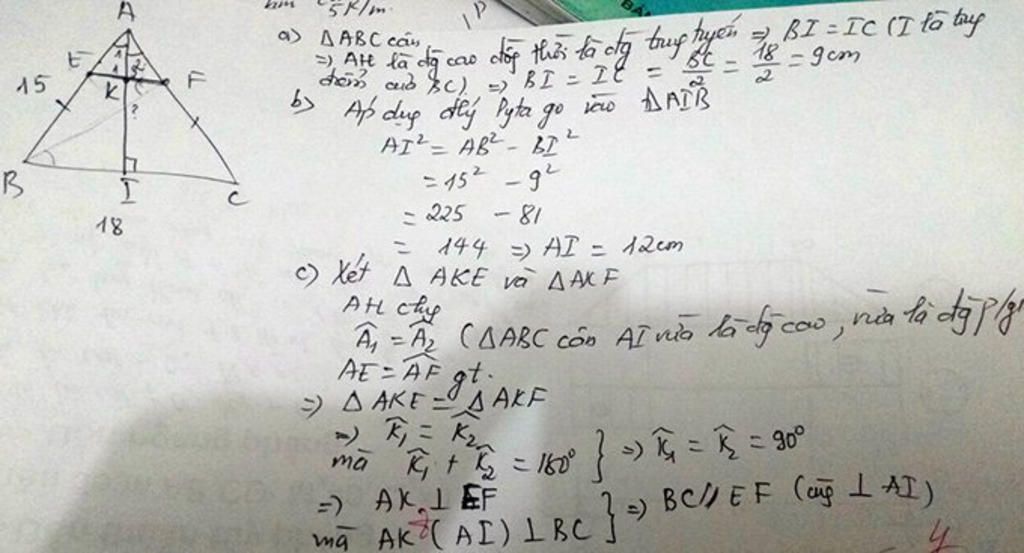 5K/m.
A
E
15
K
F
?
B
I
C
18
a) ΔABC cân
=> AH là đg cao đồng thời là đg trung tuyến => BI = IC (I là trug
điểm của BC) => BI = IC = BC/2 = 18/2 = 9cm
b) Áp dụg đlý Pyta go vào ΔAIB
AI² = AB² - BI²
= 15² - 9²
= 225 - 81
= 144 => AI = 12cm
c) Xét Δ AKE và ΔAKF
AH chug
Â₁ = Â₂ (ΔABC cân AI vừa là đg cao, vừa là đg p/g
AE = AF gt.
=> Δ AKE = Δ AKF
=> K̂₁ = K̂₂
mà K̂₁ + K̂₂ = 180° } => K̂₁ = K̂₂ = 90°
=> AK ⊥ EF
mà AK (AI) ⊥ BC } => BC // EF (cùg ⊥ AI)